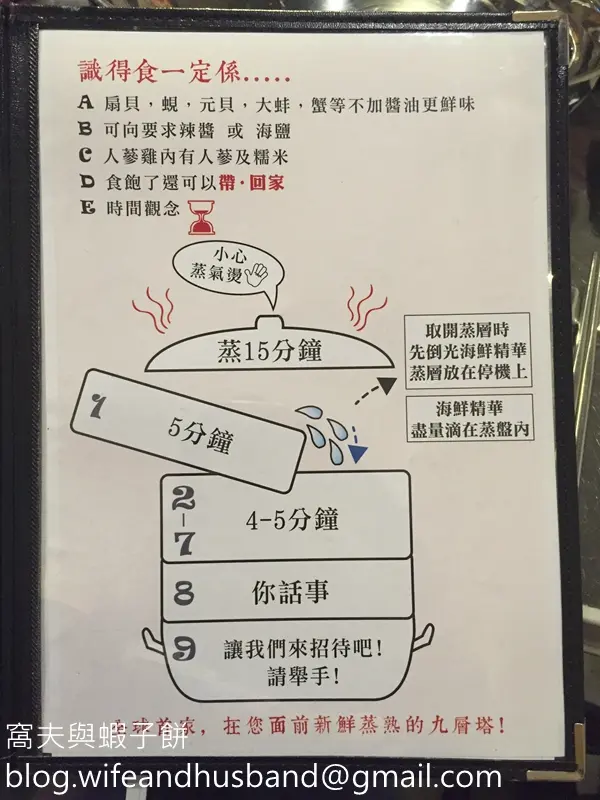 識得食一定係.....
A 扇貝，蜆，元貝，大蚌，蟹等不加醬油更鮮味
B 可向要求辣醬 或 海鹽
C 人蔘雞內有人蔘及糯米
D 食飽了還可以帶·回家
E 時間觀念
小心
蒸氣燙
蒸15分鐘
取開蒸層時
先倒光海鮮精華
蒸層放在停機上
海鮮精華
盡量滴在蒸盤內
1 5分鐘
2-7 4-5分鐘
8 你話事
9 讓我們來招待吧!
請舉手!
全球首家，在您面前新鮮蒸熟的九層塔!
窩夫與蝦子餅
blog.wifeandhusband@gmail.com